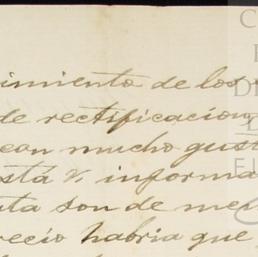 imiento de los
de rectificacion
ean mucho gust
stá V. informa
ta son de me
recio habria que